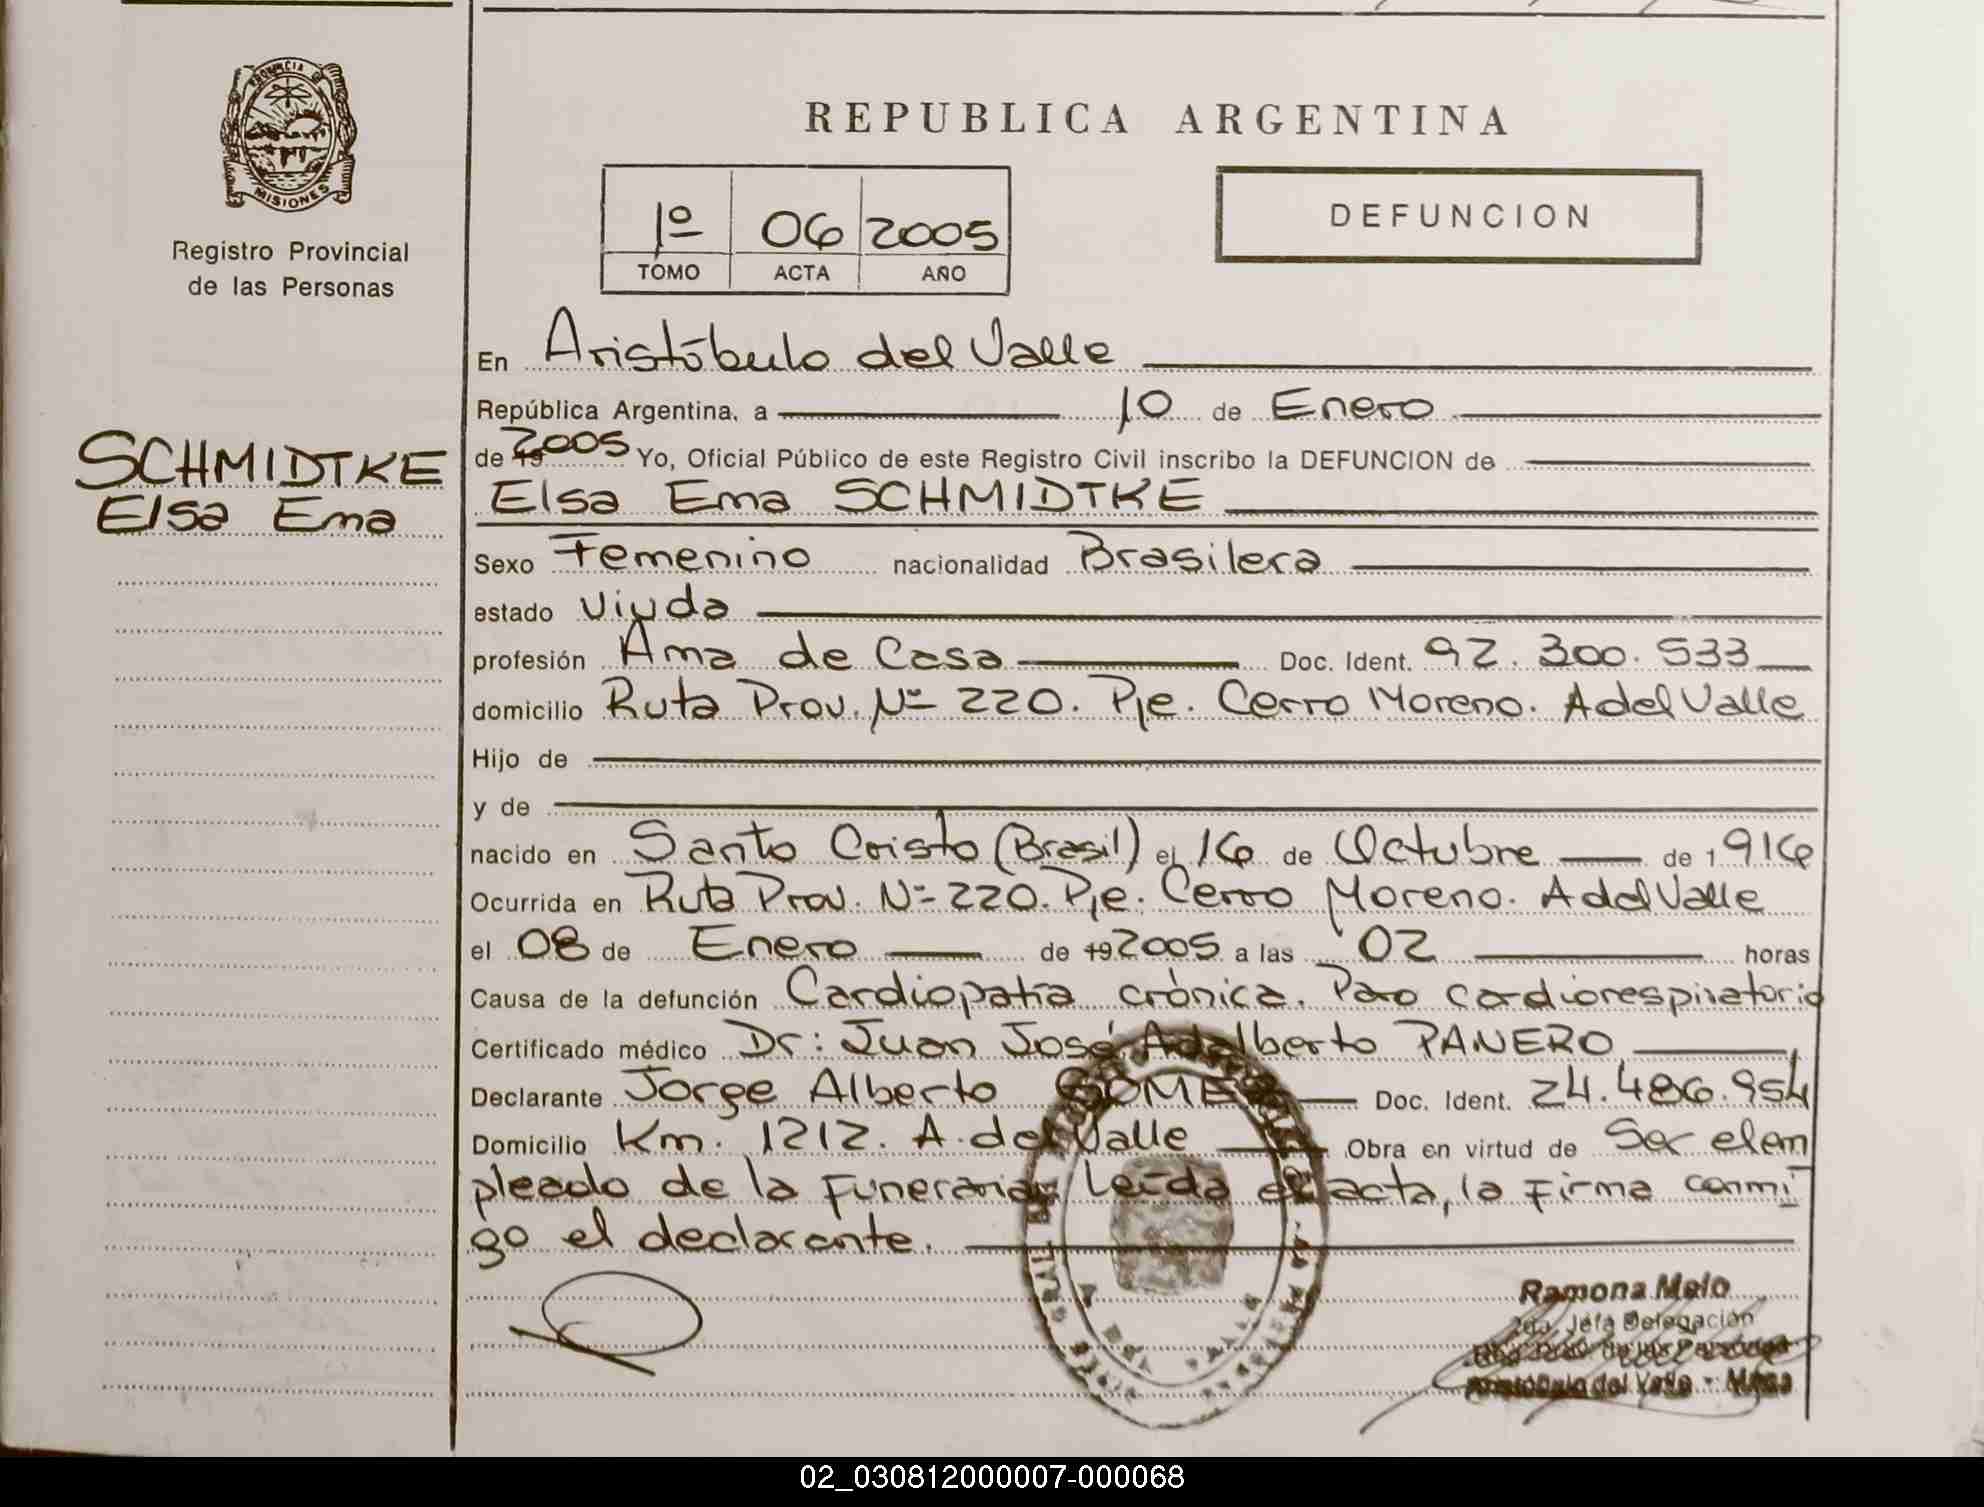 PROVINCIA D
MISIONES
Registro Provincial
de las Personas
SCHMIDTKE
Elsa Ema
REPUBLICA ARGENTINA
1º 06 2005
TOMO ACTA AÑO
DEFUNCION
En Aristóbulo del Valle
República Argentina, a 10 de Enero
de 19 2005 Yo, Oficial Público de este Registro Civil inscribo la DEFUNCION de
Elsa Ema SCHMIDTKE
Sexo Femenino nacionalidad Brasilera
estado Viuda
profesión Ama de Casa Doc. Ident. 92.300.533
domicilio Ruta Prov. Nº 220. Pje. Cerro Moreno. A del Valle
Hijo de
y de
nacido en Santo Cristo (Brasil) el 16 de Octubre de 1916
Ocurrida en Ruta Prov. Nº 220. Pje. Cerro Moreno. A del Valle
el 08 de Enero de 19 2005 a las 02 horas
Causa de la defunción Cardiopatía crónica. Paro cardiorespiratorio
Certificado médico Dr: Juan José Adalberto PANERO
Declarante Jorge Alberto GOMEZ Doc. Ident. 24.486.954
Domicilio Km. 1212. A. del Valle Obra en virtud de Ser el em
pleado de la Funeraria, Leída el acta, la firma conmi
go el declarante.
Ramona Melo
Jefa Delegación
Aristóbulo del Valle - Mnes
02_030812000007-000068